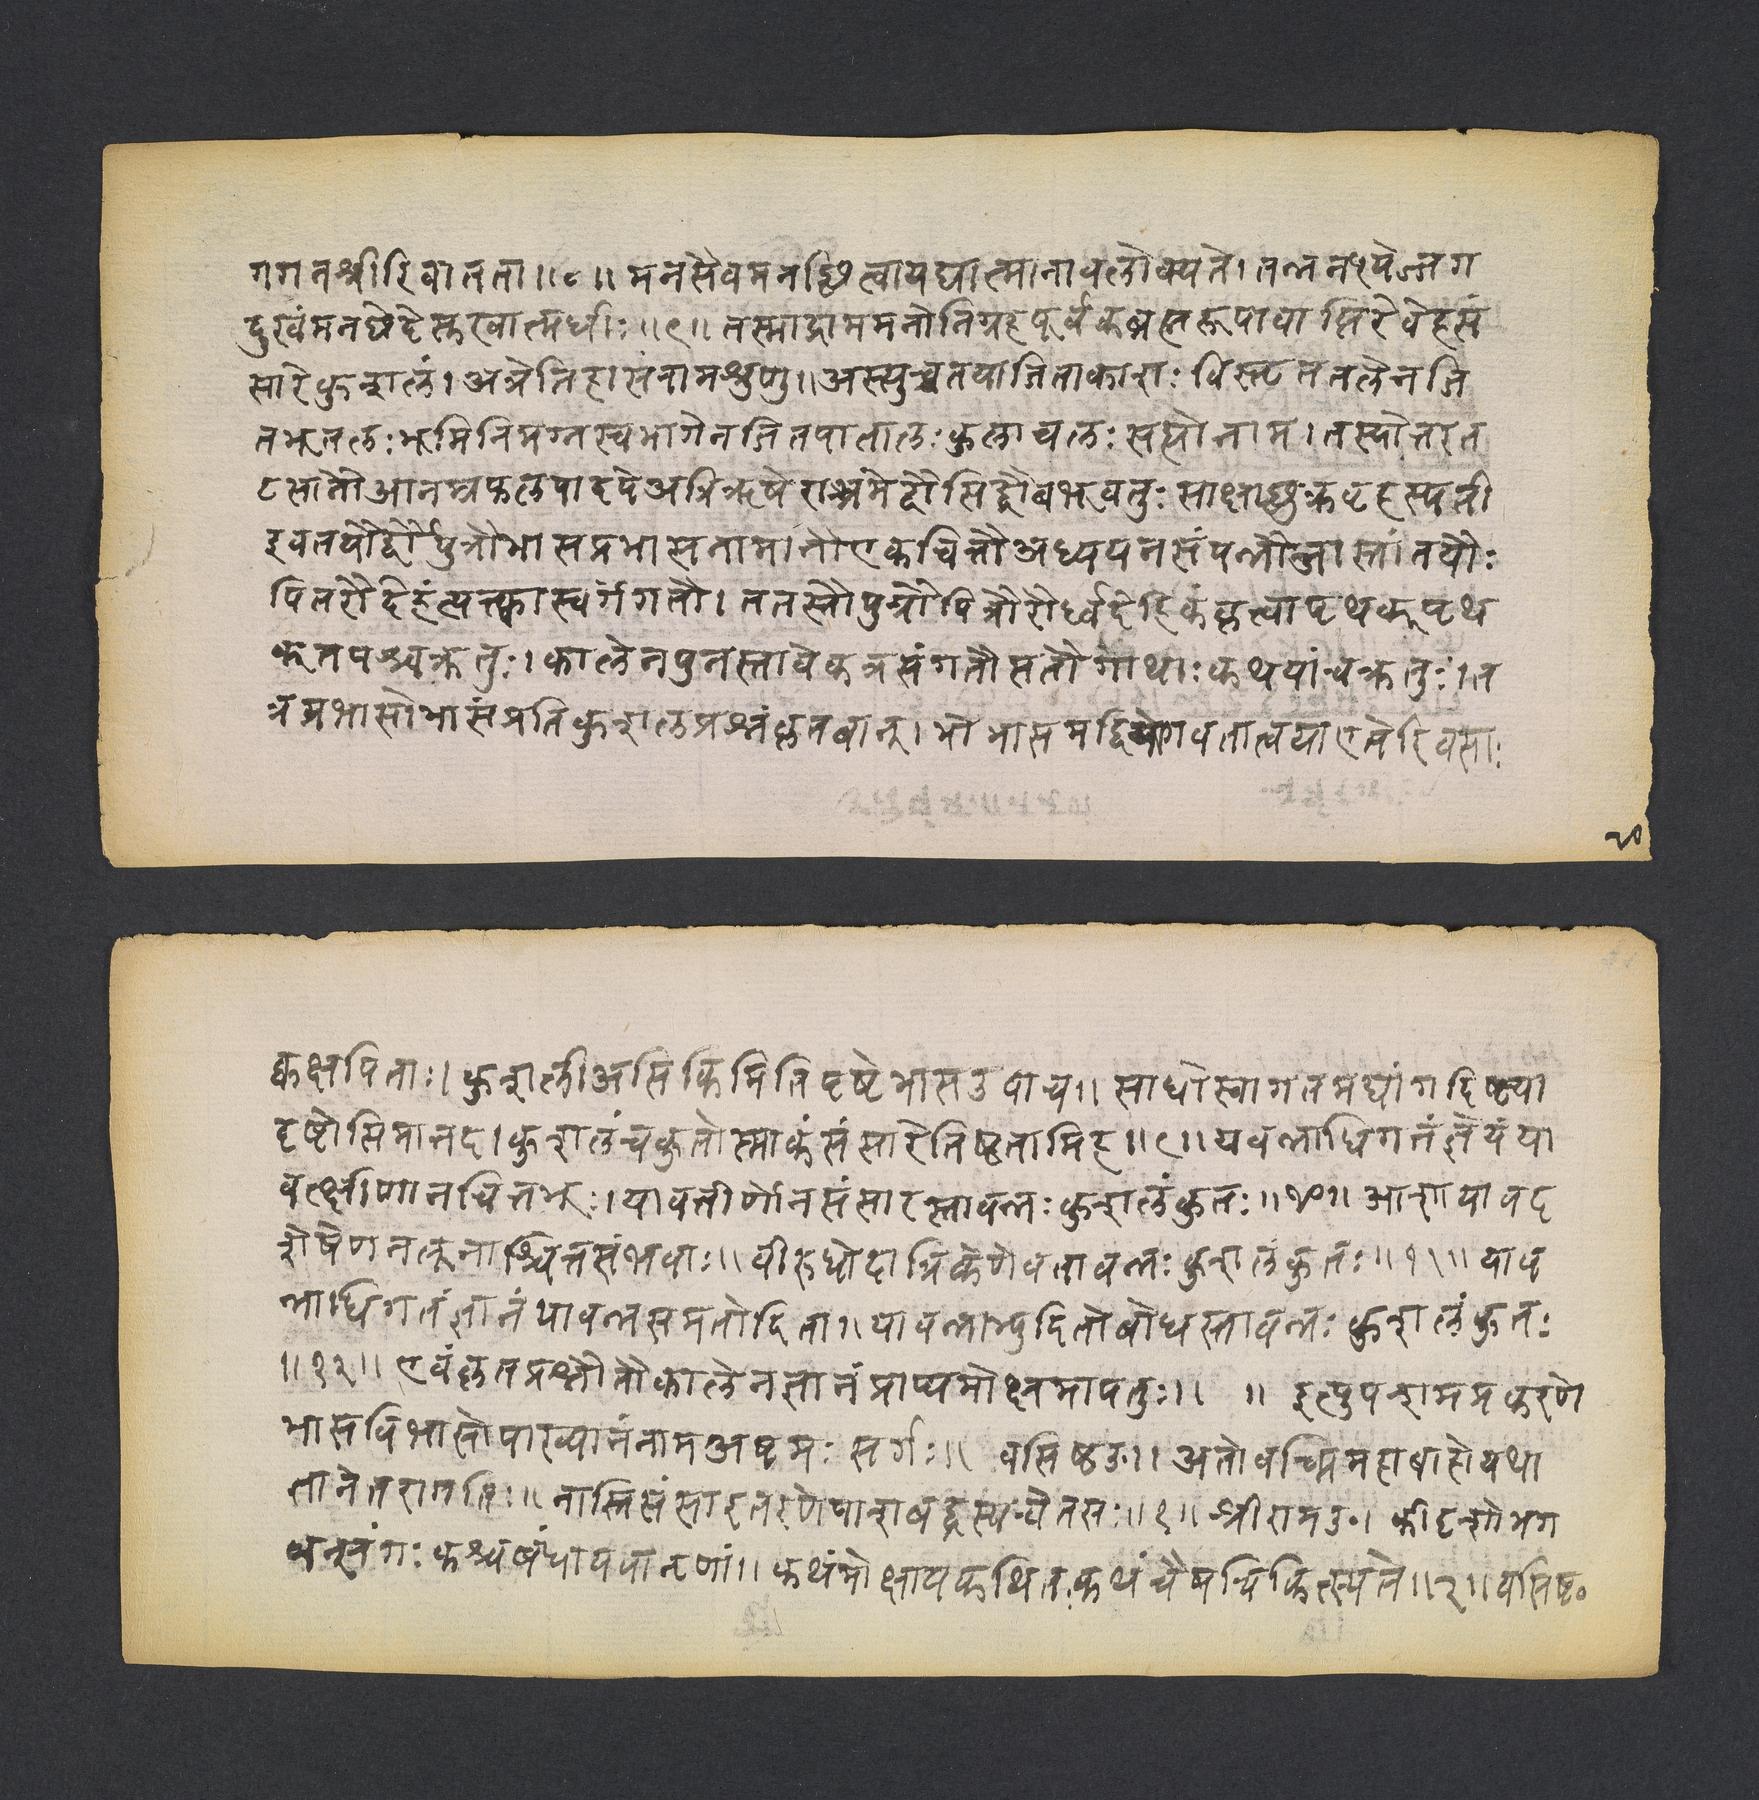 गगनश्रीरिवातता॥८॥मनसैवमनछित्वायद्यात्मानावलोक्यते।तन्ननश्येज्जग
दुखंमनछेदेस्तखात्मधीः॥९॥तस्माद्राममनोनिग्रहपूर्वकब्रह्मरूपावाप्तिरेवेहसं
सारेकुशलं।अत्रेतिहासंरामश्रुणु॥अस्त्युच्चतयाजिताकाशः विस्तृततलेनजि
तभूतलःभूमिनिमग्नस्वभागेनजितपातालःकुलाचलःसह्योनाम।तस्योत्तरत
टसातौआनम्रफलपादपेअत्रिऋषेराश्रमेद्वौसिद्धौबभूवतुःसाक्षाछुक्रबृहस्पती
इवतयोर्द्वौपुत्रौभासप्रभासनामानौएकचित्तौअध्ययनसंपन्नौआस्तां।तयोः
पितरौदेहंत्यक्त्वास्वर्गंगतौ।ततस्तौपुत्रौपित्रोरौर्ध्वदेहिकंकृत्वापृथक्पृथ
क्तपश्चक्रतुः।कालेनपुनस्तावेकत्रसंगतौसतौगाथाःकथयांचक्रतुः।त
त्रप्रभासोभासंप्रतिकुशलप्रश्नंकृतवान्।भोभासमद्वियोगवतात्वयाएतेदिवसाः
२०
क्वक्षपिताः।कुशलीअसिकिमितिपृष्टेभासउवाच॥साधोस्वागतमद्यांगदिष्ट्या
दृष्टोसिमानद।कुशलंचकुतोस्माकंसंसारेतिष्ठतामिह॥९॥यवन्नाधिगतंज्ञेयंया
वत्क्षीणानचित्तभूः।यावत्तीर्णोनसंसारस्तावन्नःकुशलंकुतः॥१०॥आशायावद
शेषेणनलूनाश्चित्तसंभवाः॥वीरुधोदात्रिकेणेवतावन्नःकुशलंकुतः॥११॥याव
न्नाधिगतंज्ञानंयावन्नसमतोदिता॥यावन्नाभ्युदितोबोधस्तावन्नःकुशलंकुतः
॥१२॥एवंकृतप्रश्नौतौकालेनज्ञानंप्राप्यमोक्षमापतुः॥ ॥ इत्युपशमप्रकरणे
भासविभासोपाख्यानंनामअष्टमः सर्गः॥ वसिष्ठउ॥अतोवच्मिमहाबाहोयथा
ज्ञानेतरागतिः॥नास्तिसंसारतरणेपाशबद्धस्यचेतसः॥१॥श्रीरामउ।कीदृशोभग
वन्संगःकश्चबंधायवानृणां॥कथंमोक्षायकथितःकथंचैषचिकित्स्यते॥२॥वसिष्ठ०